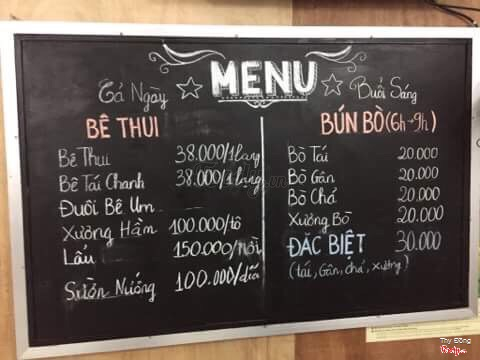 MENU
Cả Ngày
BÊ THUI
Bê Thui 38.000/1lạng
Bê Tái Chanh 38.000/1lạng
Đuôi Bê Um
Xương Hầm 100.000/tô
Lẩu 150.000/nồi
Sườn Nướng 100.000/dĩa
Buổi Sáng
BÚN BÒ (6h-9h)
Bò Tái 20.000
Bò Gân 20.000
Bò Chả 20.000
Xương Bò 20.000
ĐẶC BIỆT 30.000
(tái, Gân, chả, xương)
Thy Đồng